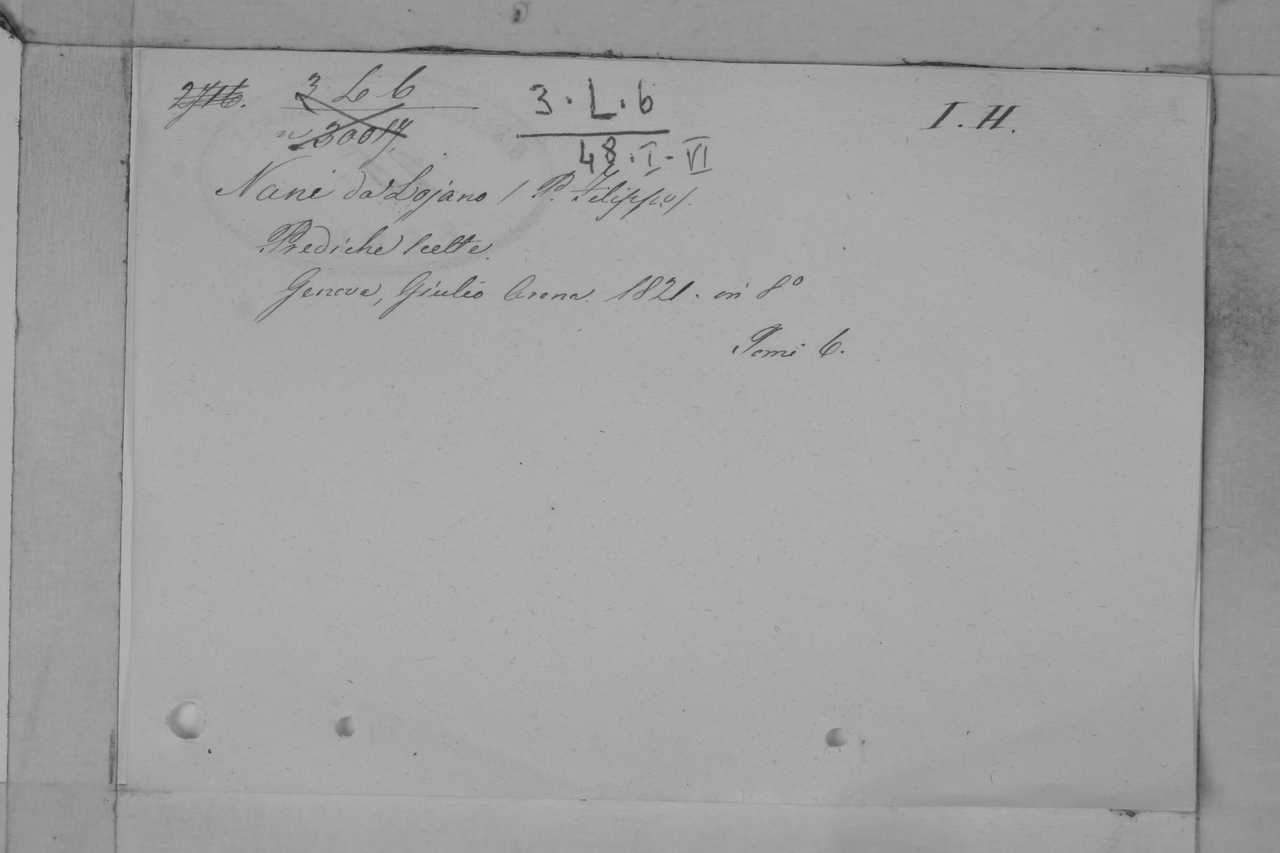 2716. 3 L 6 3 · L · 6 I. H.
n 30017. 48 · I - VI
Nani da Lojano (P. Filippo).
Prediche scelte.
Genova, Giulio Arena. 1821. in 8°
Tomi 6.